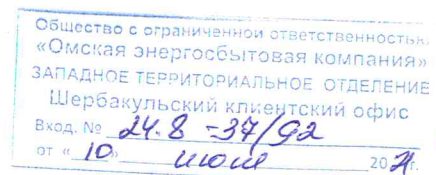 Общество с ограниченной ответственностью
«Омская энергосбытовая компания»
ЗАПАДНОЕ ТЕРРИТОРИАЛЬНОЕ ОТДЕЛЕНИЕ
Шербакульский клиентский офис
Вход. № 24.8 -37/92
от « 10 » июля 2021г.